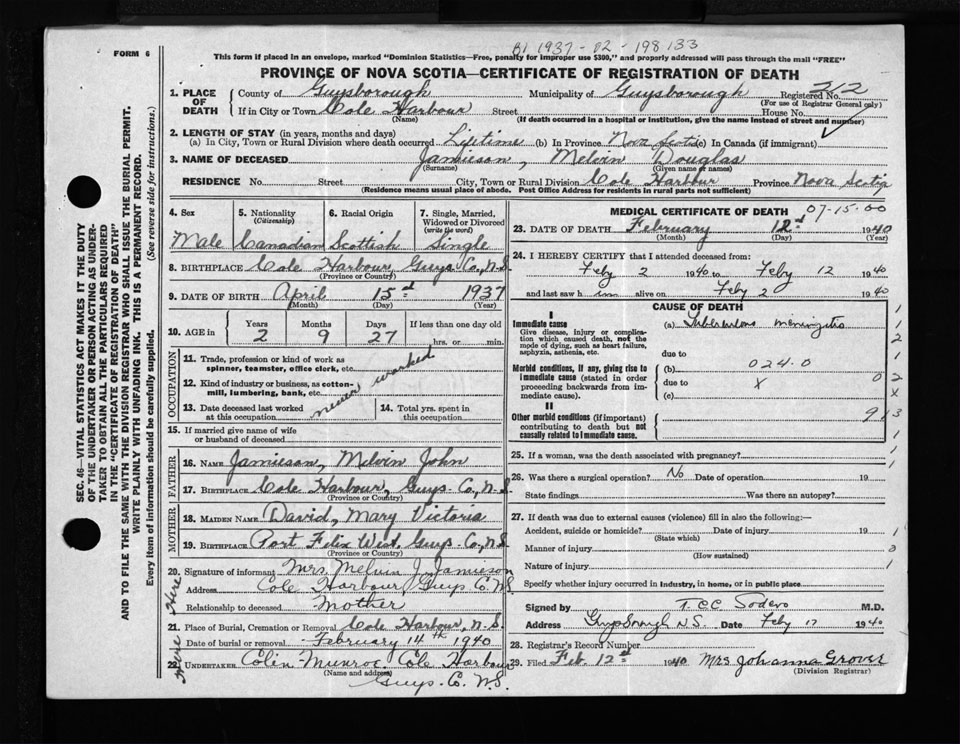 BI 1937-02-198133
FORM 6
This form if placed in an envelope, marked "Dominion Statistics—Free, penalty for improper use $300," and properly addressed will pass through the mail "FREE"
PROVINCE OF NOVA SCOTIA—CERTIFICATE OF REGISTRATION OF DEATH
SEC. 46—VITAL STATISTICS ACT MAKES IT THE DUTY
OF THE UNDERTAKER OR PERSON ACTING AS UNDER-
TAKER TO OBTAIN ALL THE PARTICULARS REQUIRED
IN THE "CERTIFICATE OF REGISTRATION OF DEATH"
AND TO FILE THE SAME WITH THE DIVISION REGISTRAR WHO SHALL ISSUE THE BURIAL PERMIT.
WRITE PLAINLY WITH UNFADING INK. THIS IS A PERMANENT RECORD.
Every item of information should be carefully supplied. (See reverse side for instructions.)
1. PLACE OF DEATH County of Guysborough Municipality of Guysborough Registered No. 212
(For use of Registrar General only)
If in City or Town Cole Harbour Street House No.
(Name) (If death occurred in a hospital or institution, give the name instead of street and number)
2. LENGTH OF STAY (in years, months and days)
(a) In City, Town or Rural Division where death occurred Lifetime (b) In Province Nova Scotia (c) In Canada (if immigrant)
3. NAME OF DECEASED Jamieson, Melvin Douglas
(Surname) (Given name or names)
RESIDENCE No. Street City, Town or Rural Division Cole Harbour Province Nova Scotia
(Residence means usual place of abode. Post Office Address for residents in rural parts not sufficient)
4. Sex Male
5. Nationality (Citizenship) Canadian
6. Racial Origin Scottish
7. Single, Married, Widowed or Divorced (write the word) Single
8. BIRTHPLACE Cole Harbour, Guys. Co., N.S.
(Province or Country)
9. DATE OF BIRTH April 15th 1937
(Month) (Day) (Year)
10. AGE in Years 2 Months 9 Days 27 If less than one day old
hrs. or min.
OCCUPATION
11. Trade, profession or kind of work as spinner, teamster, office clerk, etc.
12. Kind of industry or business, as cotton-mill, lumbering, bank, etc.
never worked
13. Date deceased last worked at this occupation
14. Total yrs. spent in this occupation
15. If married give name of wife or husband of deceased
FATHER
16. NAME Jamieson, Melvin John
17. BIRTHPLACE Cole Harbour, Guys. Co., N.S.
(Province or Country)
MOTHER
18. MAIDEN NAME David, Mary Victoria
19. BIRTHPLACE Port Felix West, Guys. Co., N.S.
(Province or Country)
20. Signature of informant Mrs Melvin J. Jamieson
Address Cole Harbour, Guys C. N.S.
Relationship to deceased Mother
21. Place of Burial, Cremation or Removal Cole Harbour, N.S.
Date of burial or removal February 14th 1940
22. UNDERTAKER Colin Munroe Cole Harbour
(Name and address)
Guys. C. N.S.
MEDICAL CERTIFICATE OF DEATH 07-15.00
23. DATE OF DEATH February 12th 1940
(Month) (Day) (Year)
24. I HEREBY CERTIFY that I attended deceased from:
Feby 2 1940 to Feby 12 1940
and last saw him alive on Feby 2 1940
CAUSE OF DEATH
I
Immediate cause (a) Tuberculous meningitis
Give disease, injury or complication which caused death, not the mode of dying, such as heart failure, asphyxia, asthenia, etc.
due to
Morbid conditions, if any, giving rise to immediate cause (stated in order proceeding backwards from immediate cause). (b) 024.0
due to X
(c)
II
Other morbid conditions (if important) contributing to death but not causally related to immediate cause.
25. If a woman, was the death associated with pregnancy?
26. Was there a surgical operation? No Date of operation 19
State findings Was there an autopsy?
27. If death was due to external causes (violence) fill in also the following:—
Accident, suicide or homicide? Date of injury 19
(State which)
Manner of injury
(How sustained)
Nature of injury
Specify whether injury occurred in industry, in home, or in public place
Signed by T. CC Sodero M.D.
Address Guysborough N.S. Date Feby 12 1940
28. Registrar's Record Number
29. Filed Feb. 12th 1940 Mrs Johanna Grover
(Division Registrar)